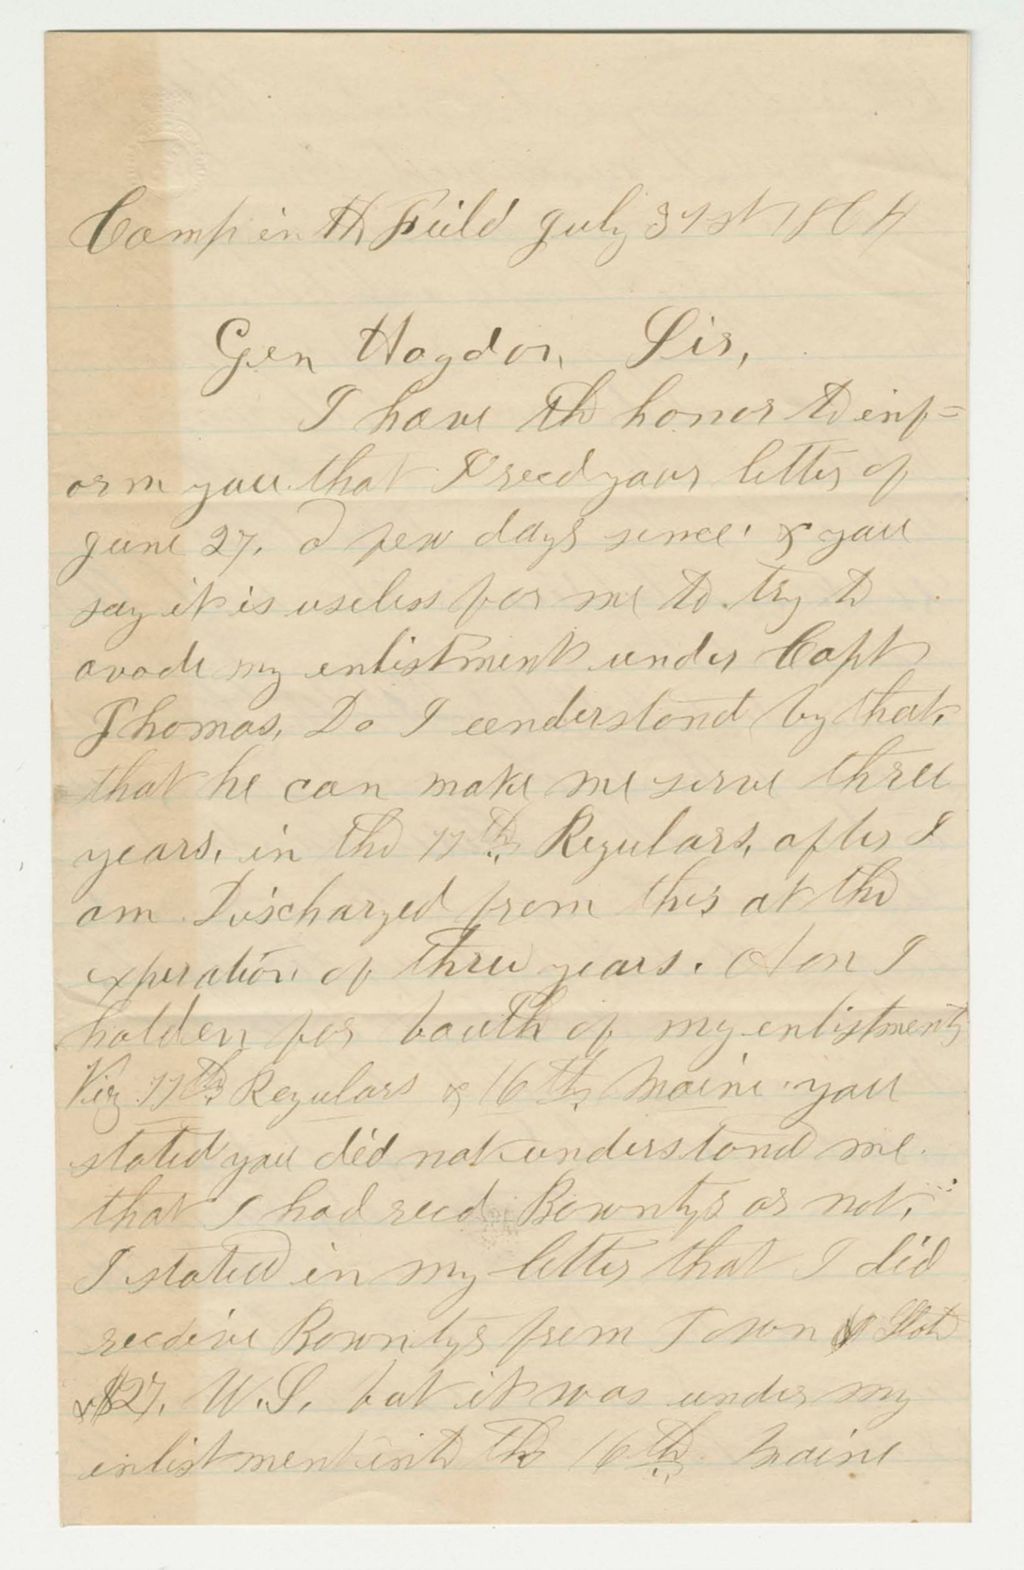 Camp in the Feild July 31st 1864
Gen Hogdon, Sir,
I have the honor to inf=
orm you that I recd your letter of
June 27. a few days since. & you
say it is useless for me to try to
avade my enlistment under Capt
Thomas, Do I understand by that,
that he can make me serve three
years, in the 17th Regulars, after I
am Discharged from this at the
experation of three years. Am I
holden for bouth of my enlistments
Viz 17th Regulars & 16th Maine you
stated you did not understand me
that I had recd Bowntys or not,
I stated in my letter that I did
receive Bowntys from Town & State
& $27. U.S. but it was under my
enlistment into the 16th Maine